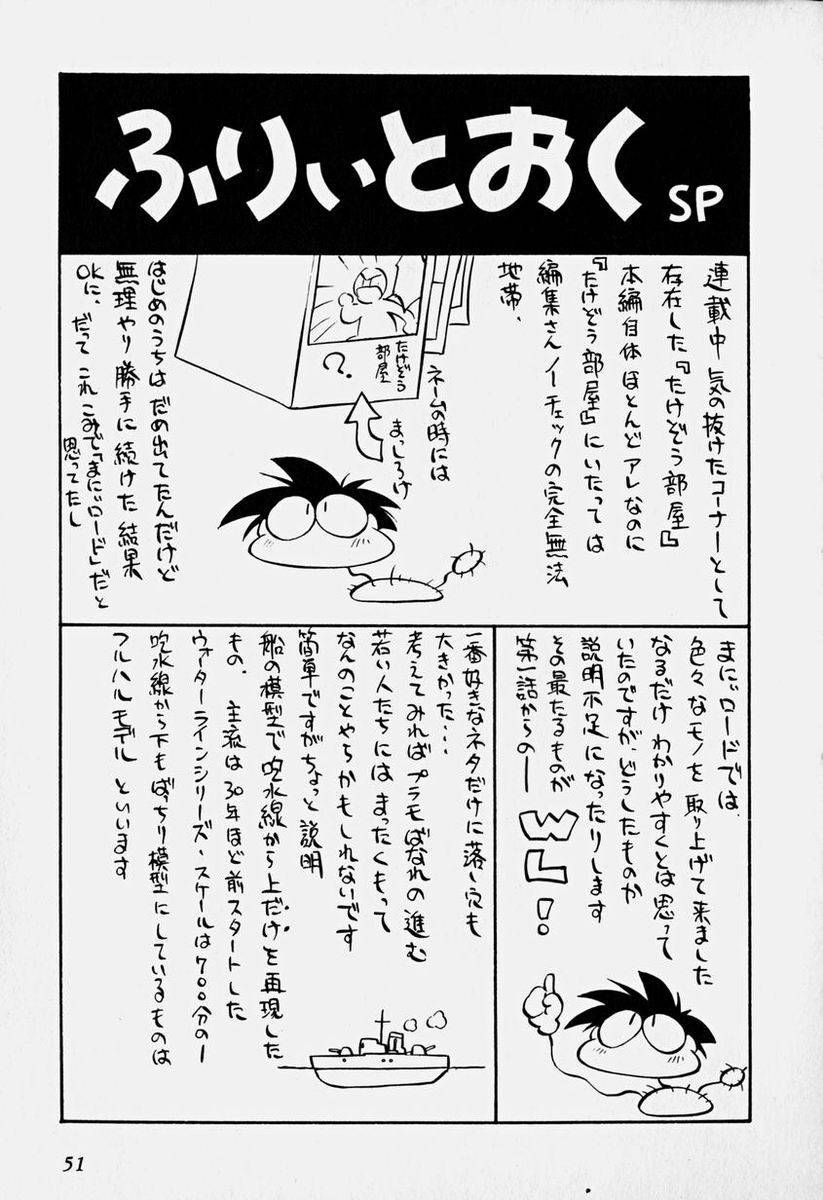 ふりぃとおく SP
連載中 気の抜けたコーナーとして
存在した『たけぞう部屋』
本編自体 ほとんどアレなのに
『たけぞう部屋』にいたっては
編集さん ノーチェックの完全無法
地帯、
ネームの時には
まっしろけ
たけぞう
部屋
?
はじめのうちは だめ出てたんだけど
無理やり 勝手に続けた 結果
OKに、
だって これ こみで「まにぃロード」だと
思ってたし
まにぃロードでは
色々なモノを 取り上げて来ました
なるだけ わかりやすくとは思って
いたのですが、どうしたものか
説明不足になったりします
その最たるものが
第一話からのー
WL!
一番好きなネタだけに落し穴も
大きかった・・・
考えてみれば プラモばなれの進む
若い人たちには まったくもって
なんのことやらかもしれないです
簡単ですがちょっと説明
船の模型で吃水線から上だけを再現した
もの。 主流は 30年ほど前スタートした
ウォーターラインシリーズ・スケールは700分の一
吃水線から下もばっちり模型にしているものは
フルハルモデル といいます
51